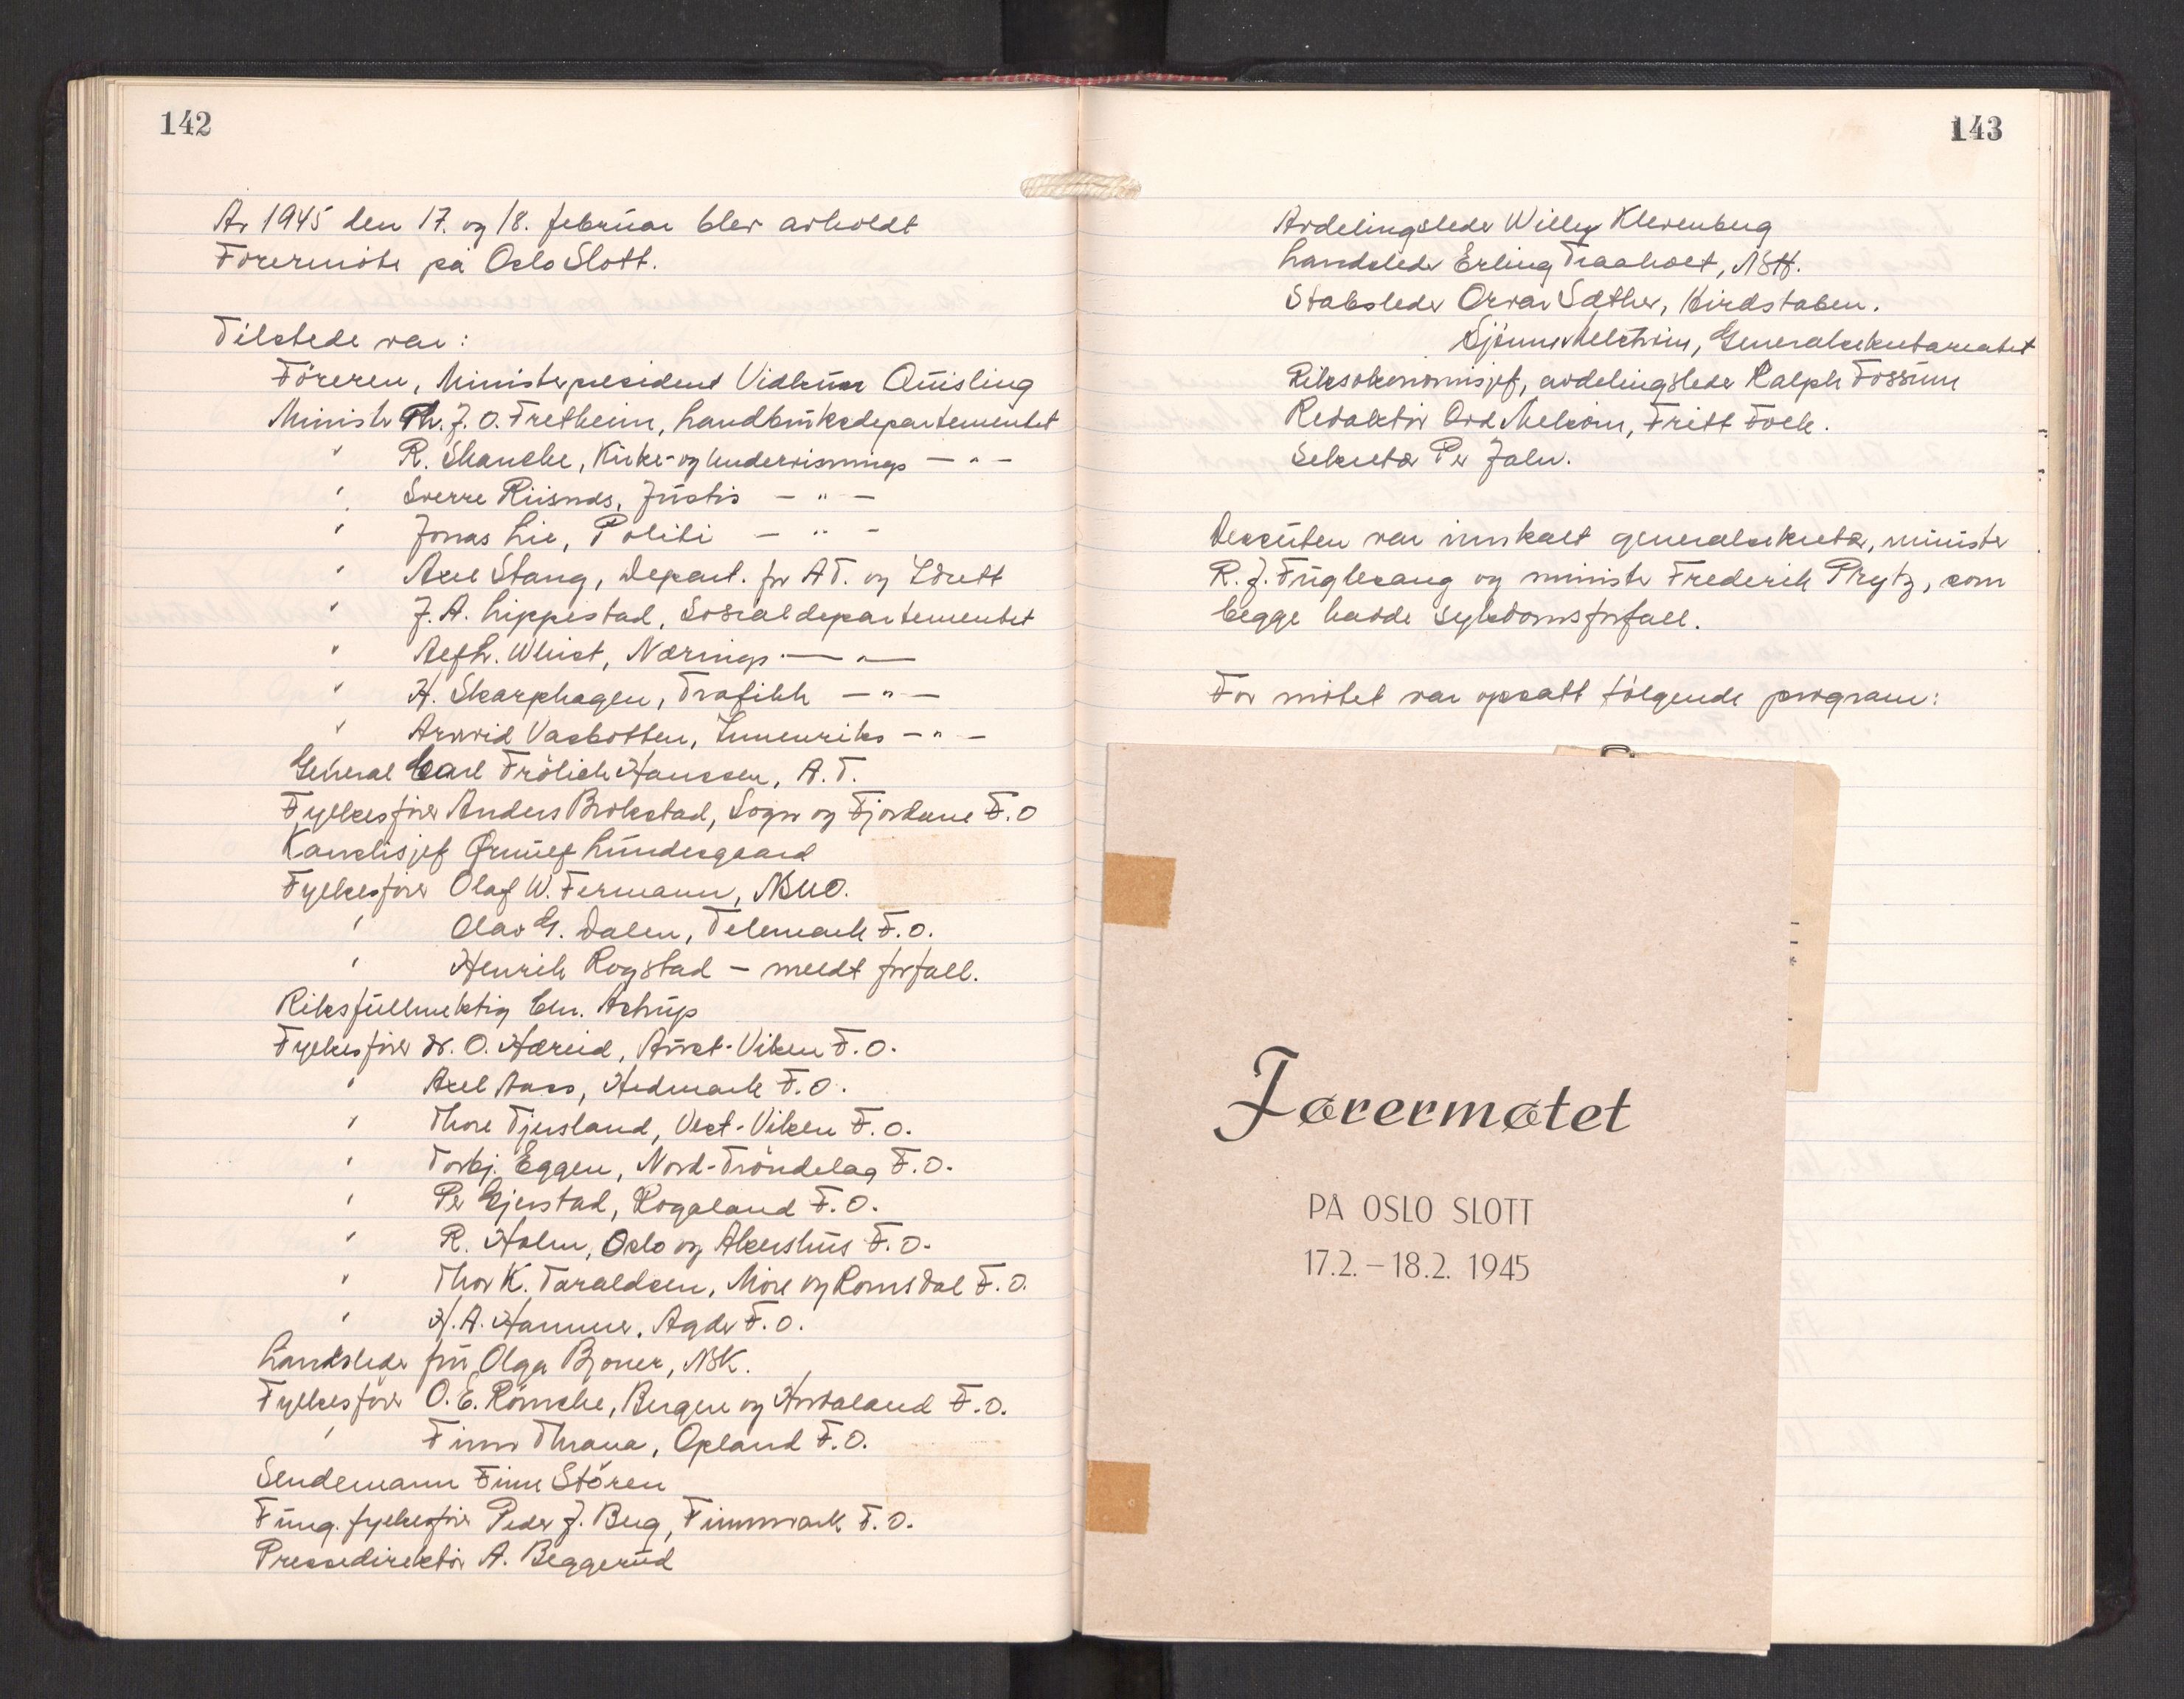 142
År 1945 den 17. og 18. februar blev avholdt
Førermöte på Oslo Slott.
Tilstede var:
Föreren, Ministerpresident Vidkun Quisling
Minister Th. J. O. Fretheim, Landbruksdepartementet
" R. Skancke, Kirke- og Undervisnings — " —
" Sverre Riisnæs, Justis — " —
" Jonas Lie, Politi — " —
" Axel Stang, Depart. for AT. og Idrett
" J. A. Lippestad, Sosialdepartementet
" Alf L. Whist, Nærings — " —
" H. Skarphagen, Trafikk — " —
" Arnvid Vasbotten, Innenriks — " —
General Carl Frölich Hanssen, A.T.
Fylkesförer Anders Brokstad, Sogn og Fjordane F.O
Kansellisjef Ørnulf Lundesgaard
Fylkesfører Olaf W. Fermann, NSUO.
" Olav G. Dalen, Telemark F.O.
" Henrik Rogstad – meldt forfall.
Riksfullmektig Chr. Astrup
Fylkesfører Dr. O. Hæreid, Aust-Viken F.O.
" Axel Aass, Hedmark F.O.
" Thore Tjersland, Vest-Viken F.O.
" Torbj. Eggen, Nord-Tröndelag F.O.
" Per Gjerstad, Rogaland F.O.
" R. Holm, Oslo og Akershus F.O.
" Thor K. Taraldsen, Møre og Romsdal F.O.
" H. A. Hammer, Agder F.O.
Landsleder fru Olga Bjoner, NSK.
Fylkesfører O. E. Rönneke, Bergen og Hordaland F.O.
" Finn Thrana, Opland F.O.
Sendemann Finn Stören
Fung. fylkesfører Peder J. Berg, Finnmark F.O.
Pressedirektör A. Beggerud
143
Avdelingsleder Willy Klevenberg
Landsleder Erling Traaholt, NSH.
Stabsleder Orvar Sæther, Hirdstaben.
Melström, Generalsekretariatet
Riksökonomisjef, avdelingsleder Ralph Fossum
Redaktör Odd Melsom, Fritt Folk.
Sekretær Per Jahr.
Dessuten var innkalt generalsekretær, minister
R. J. Fuglesang og minister Frederik Prytz, som
begge hadde sykdomsforfall.
For mötet var opsatt fölgende program:
Førermøtet
PÅ OSLO SLOTT
17.2. – 18.2. 1945